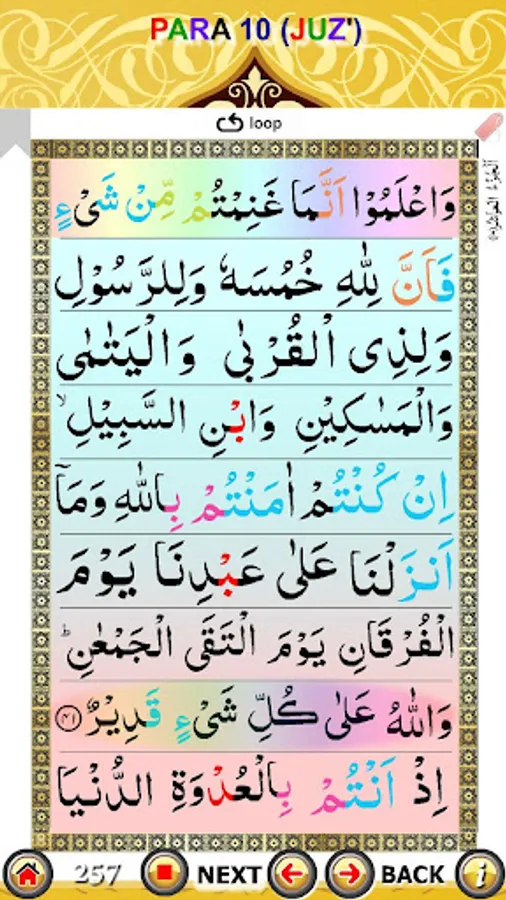 PARA 10 (JUZ')
loop
وَاعْلَمُوْا اَنَّمَا غَنِمْتُمْ مِّنْ شَیْءٍ
فَاَنَّ لِلّٰهِ خُمُسَهٗ وَلِلرَّسُوْلِ
وَلِذِی الْقُرْبٰی وَالْیَتٰمٰی
وَالْمَسٰكِیْنِ وَابْنِ السَّبِیْلِ ۙ
اِنْ كُنْتُمْ اٰمَنْتُمْ بِاللّٰهِ وَمَاۤ
اَنْزَلْنَا عَلٰی عَبْدِنَا یَوْمَ
الْفُرْقَانِ یَوْمَ الْتَقَی الْجَمْعٰنِ ؕ
وَاللّٰهُ عَلٰی كُلِّ شَیْءٍ قَدِیْرٌ ﴿۴۱﴾
اِذْ اَنْتُمْ بِالْعُدْوَةِ الدُّنْیَا
257 NEXT BACK i